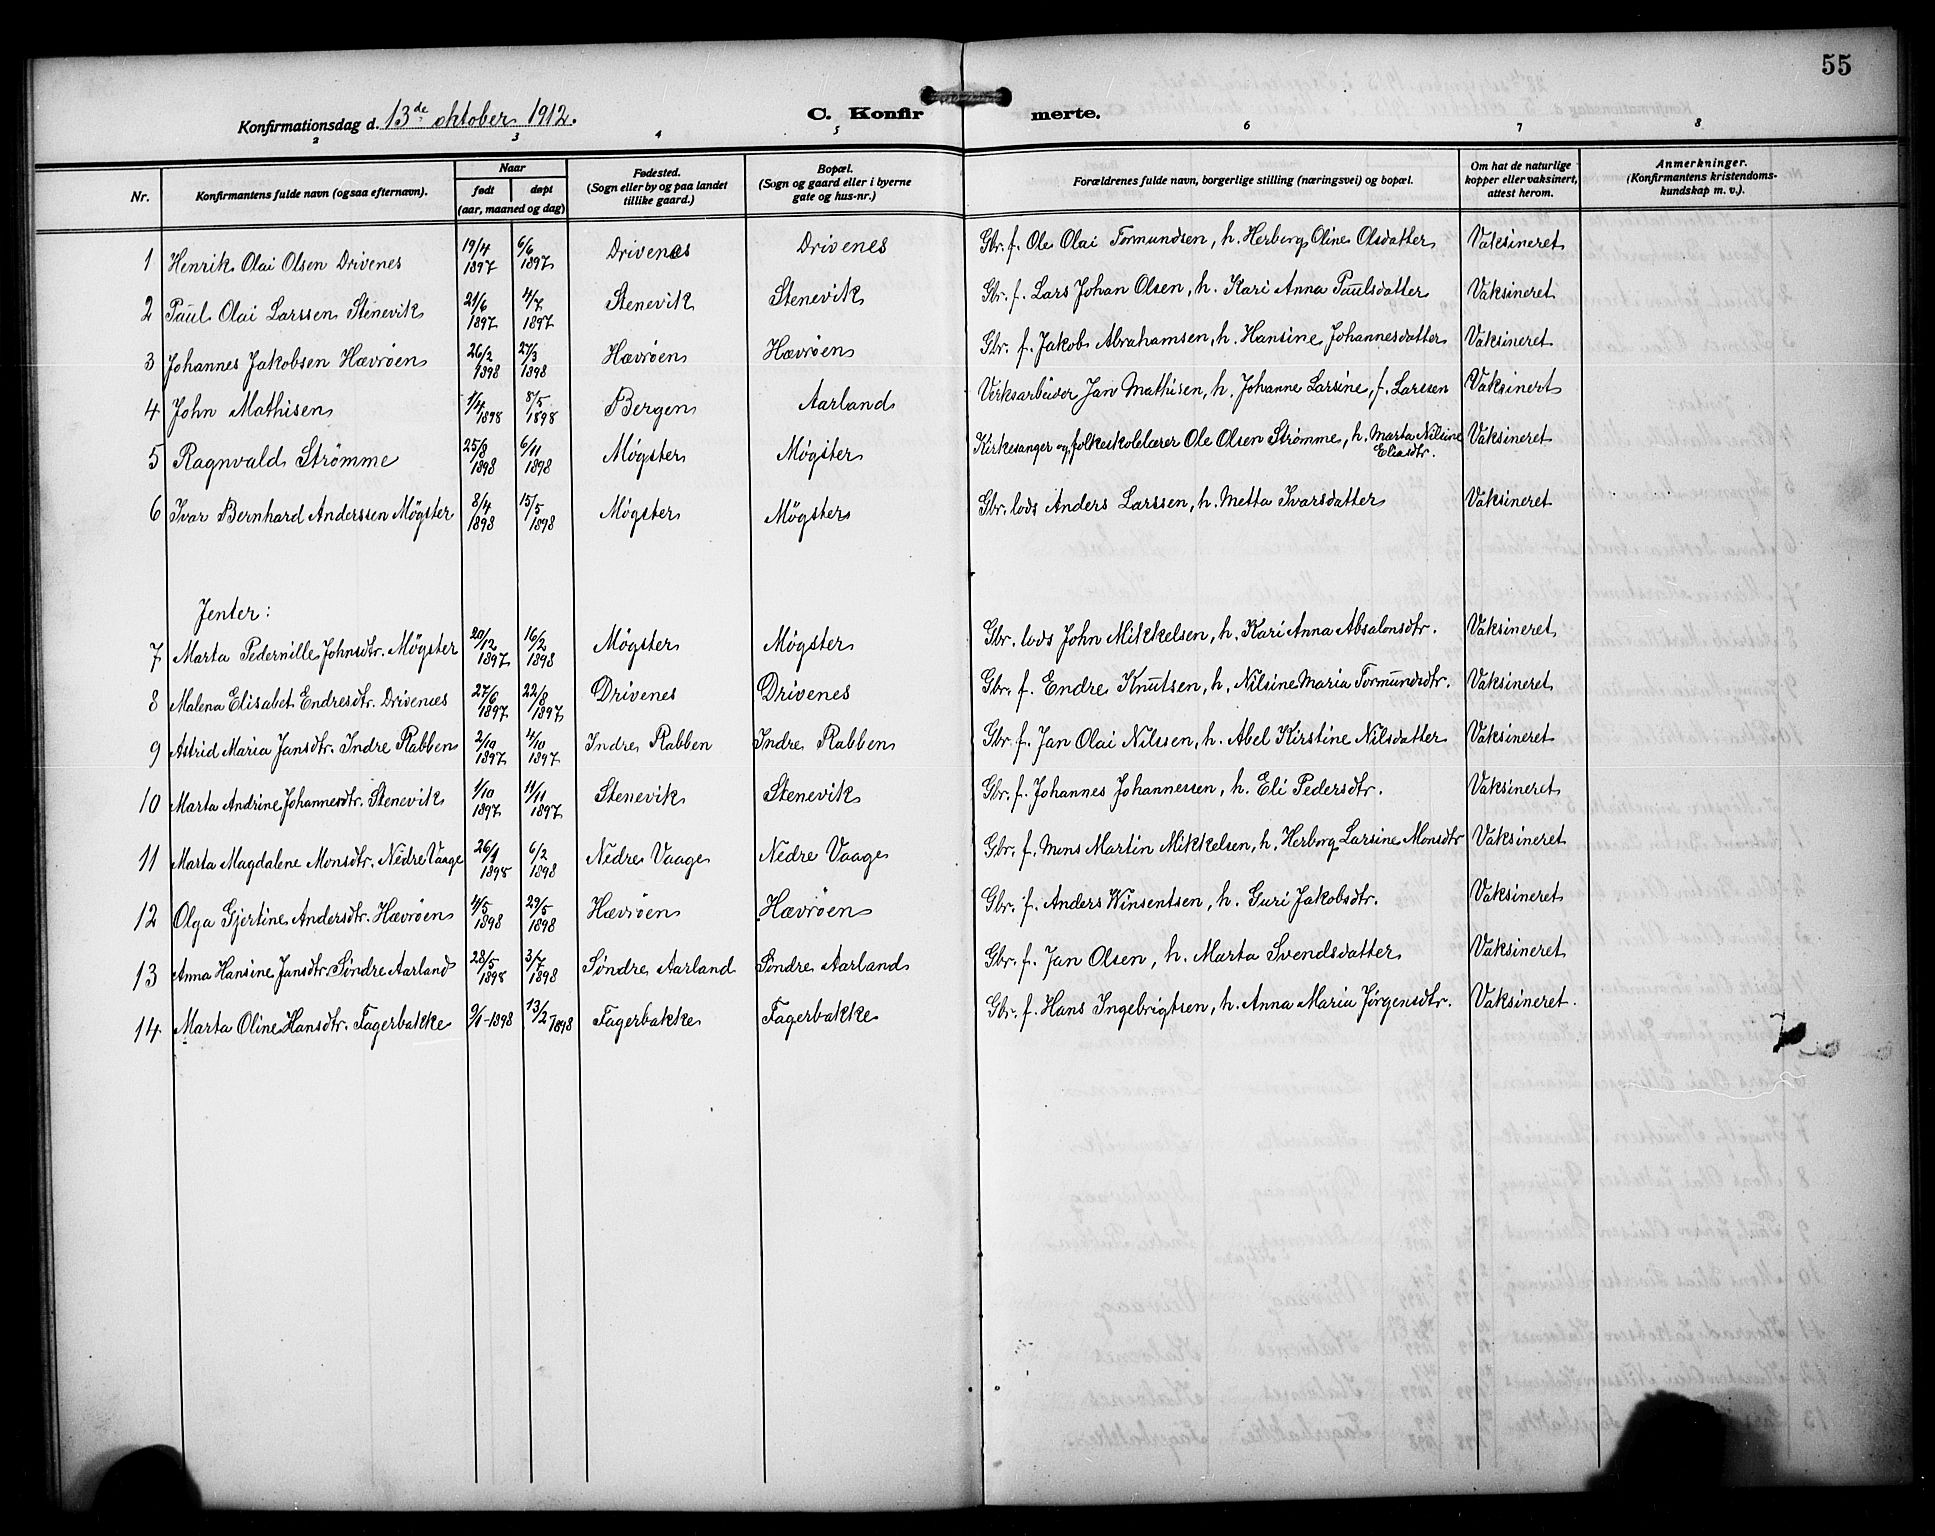 55
Konfirmationsdag d. 13de oktober 1912.
C. Konfirmerte.
2 3 4 5 6 7 8
Nr. Konfirmantens fulde navn (ogsaa efternavn). Naar født døpt (aar, maaned og dag) Fødested. (Sogn eller by og paa landet tillike gaard.) Bopæl. (Sogn og gaard eller i byerne gate og hus-nr.) Forældrenes fulde navn, borgerlige stilling (næringsvei) og bopæl. Om hat de naturlige kopper eller vaksinert, attest herom. Anmerkninger. (Konfirmantens kristendomskundskap m. v.).
1 Henrik Olai Olsen Drivenes 19/4 1897 6/6 1897 Drivenes Drivenes Gbr. f. Ole Olai Tormundsen, h. Herborg Oline Olsdatter Vaksineret
2 Paul Olai Larssen Stenevik 21/6 1897 4/7 1897 Stenevik Stenevik Gbr. f. Lars Johan Olsen, h. Kari Anna Paulsdatter Vaksineret
3 Johannes Jakobsen Hævrøen 26/2 1898 27/3 1898 Hævrøen Hævrøen Gbr. f. Jakob Abrahamsen, h. Hansine Johannesdatter Vaksineret
4 John Mathisen 1/4 1898 8/5 1898 Bergen Aarland Verksarbeider Jan Mathisen, h. Johanne Larsine, f. Larssen Vaksinert
5 Ragnvald Strømme 25/8 1898 6/11 1898 Møgster Møgster Kirkesanger og folkeskolelærer Ole Olsen Strømme, h. Marta Nilsine Eliasdtr. Vaksineret
6 Ivar Bernhard Anderssen Møgster 8/4 1898 15/5 1898 Møgster Møgster Gbr. lods Anders Larssen, h. Metta Ivarsdatter Vaksineret
Jenter:
7 Marta Pedernille Johnsdtr. Møgster 20/12 1897 16/2 1898 Møgster Møgster Gbr. lods John Mikkelsen, h. Kari Anna Absalonsdtr. Vaksineret
8 Malena Elisabet Endresdtr. Drivenes 27/6 1897 22/8 1897 Drivenes Drivenes Gbr. f. Endre Knutsen, h. Nilsine Maria Tormundsdtr. Vaksineret
9 Astrid Maria Jansdtr. Indre Rabben 2/10 1897 4/10 1897 Indre Rabben Indre Rabben Gbr. f. Jan Olai Nilssen, h. Abel Kirstine Nilsdatter Vaksineret
10 Marta Andrine Johannesdtr. Stenevik 1/10 1897 11/11 1897 Stenevik Stenevik Gbr. f. Johannes Johannessen, h. Eli Pedersdtr. Vaksineret
11 Marta Magdalene Monsdtr. Nedre Vaage 26/1 1898 6/2 1898 Nedre Vaage Nedre Vaage Gbr. f. Mons Martin Mikkelsen, h. Herborg Larsine Monsdtr Vaksineret
12 Olga Gjertine Andersdtr. Hævrøen 4/5 1898 29/5 1898 Hævrøen Hævrøen Gbr. f. Anders Winsentsen, h. Guri Jakobsdtr. Vaksineret
13 Anna Hansine Jansdtr. Søndre Aarland 28/5 1898 3/7 1898 Søndre Aarland Søndre Aarland Gbr. f. Jan Olsen, h. Marta Svendsdatter Vaksineret
14 Marta Oline Hansdtr. Fagerbakke 9/1-1898 13/2-1898 Fagerbakke Fagerbakke Gbr. f. Hans Ingebrigtsen, h. Anna Maria Jørgensdtr. Vaksineret.